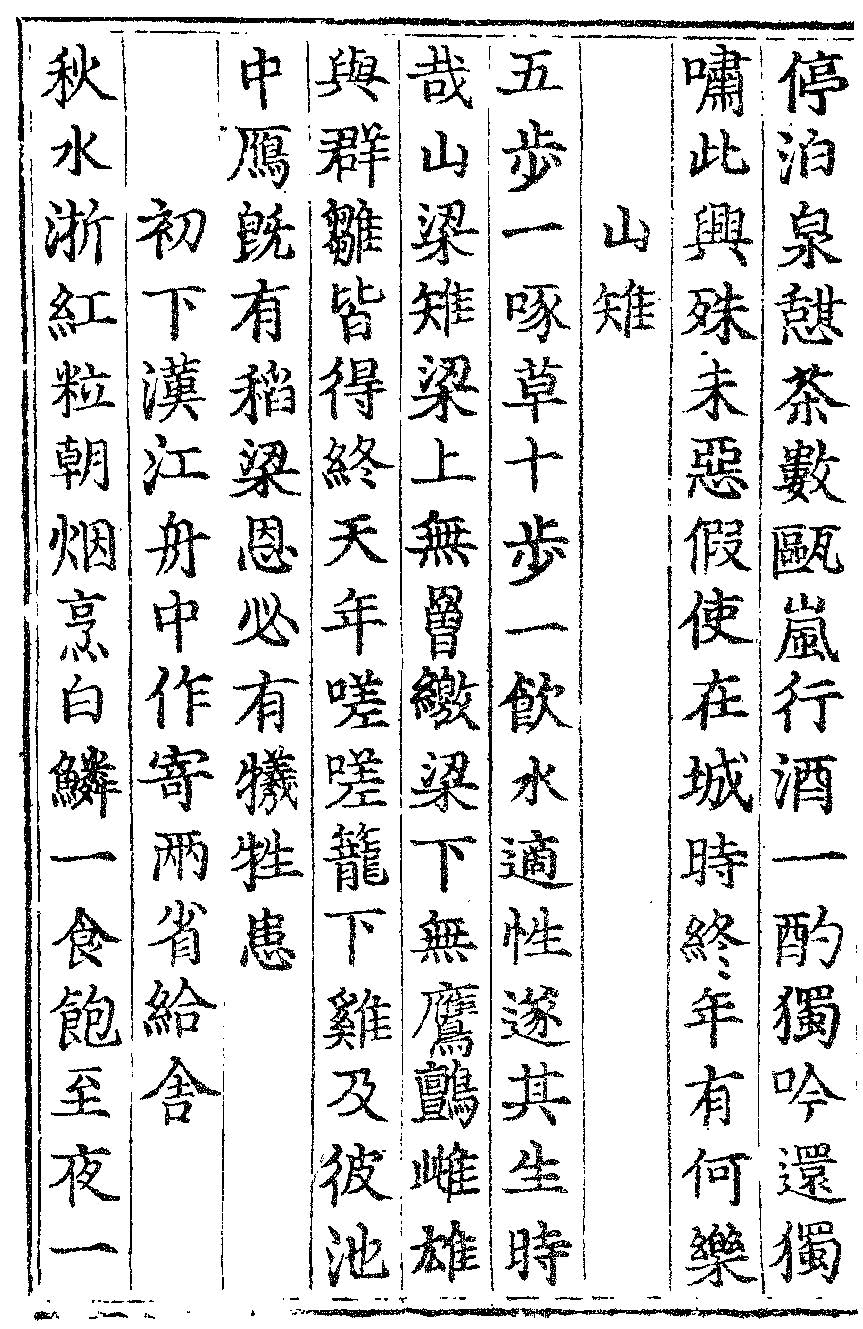 停泊泉憇茶數甌嵐行酒一酌獨吟還獨
嘯此興殊未惡假使在城時終年有何樂
山雉
五步一啄草十步一飲水適性遂其生時
哉山梁雉梁上無罾繳梁下無鷹鸇雌雄
與群雛皆得終天年嗟嗟籠下雞及彼池
中鴈旣有稻梁恩必有犧牲患
初下漢江舟中作寄兩省給舍
秋水淅紅粒朝烟烹白鱗一食飽至夜一